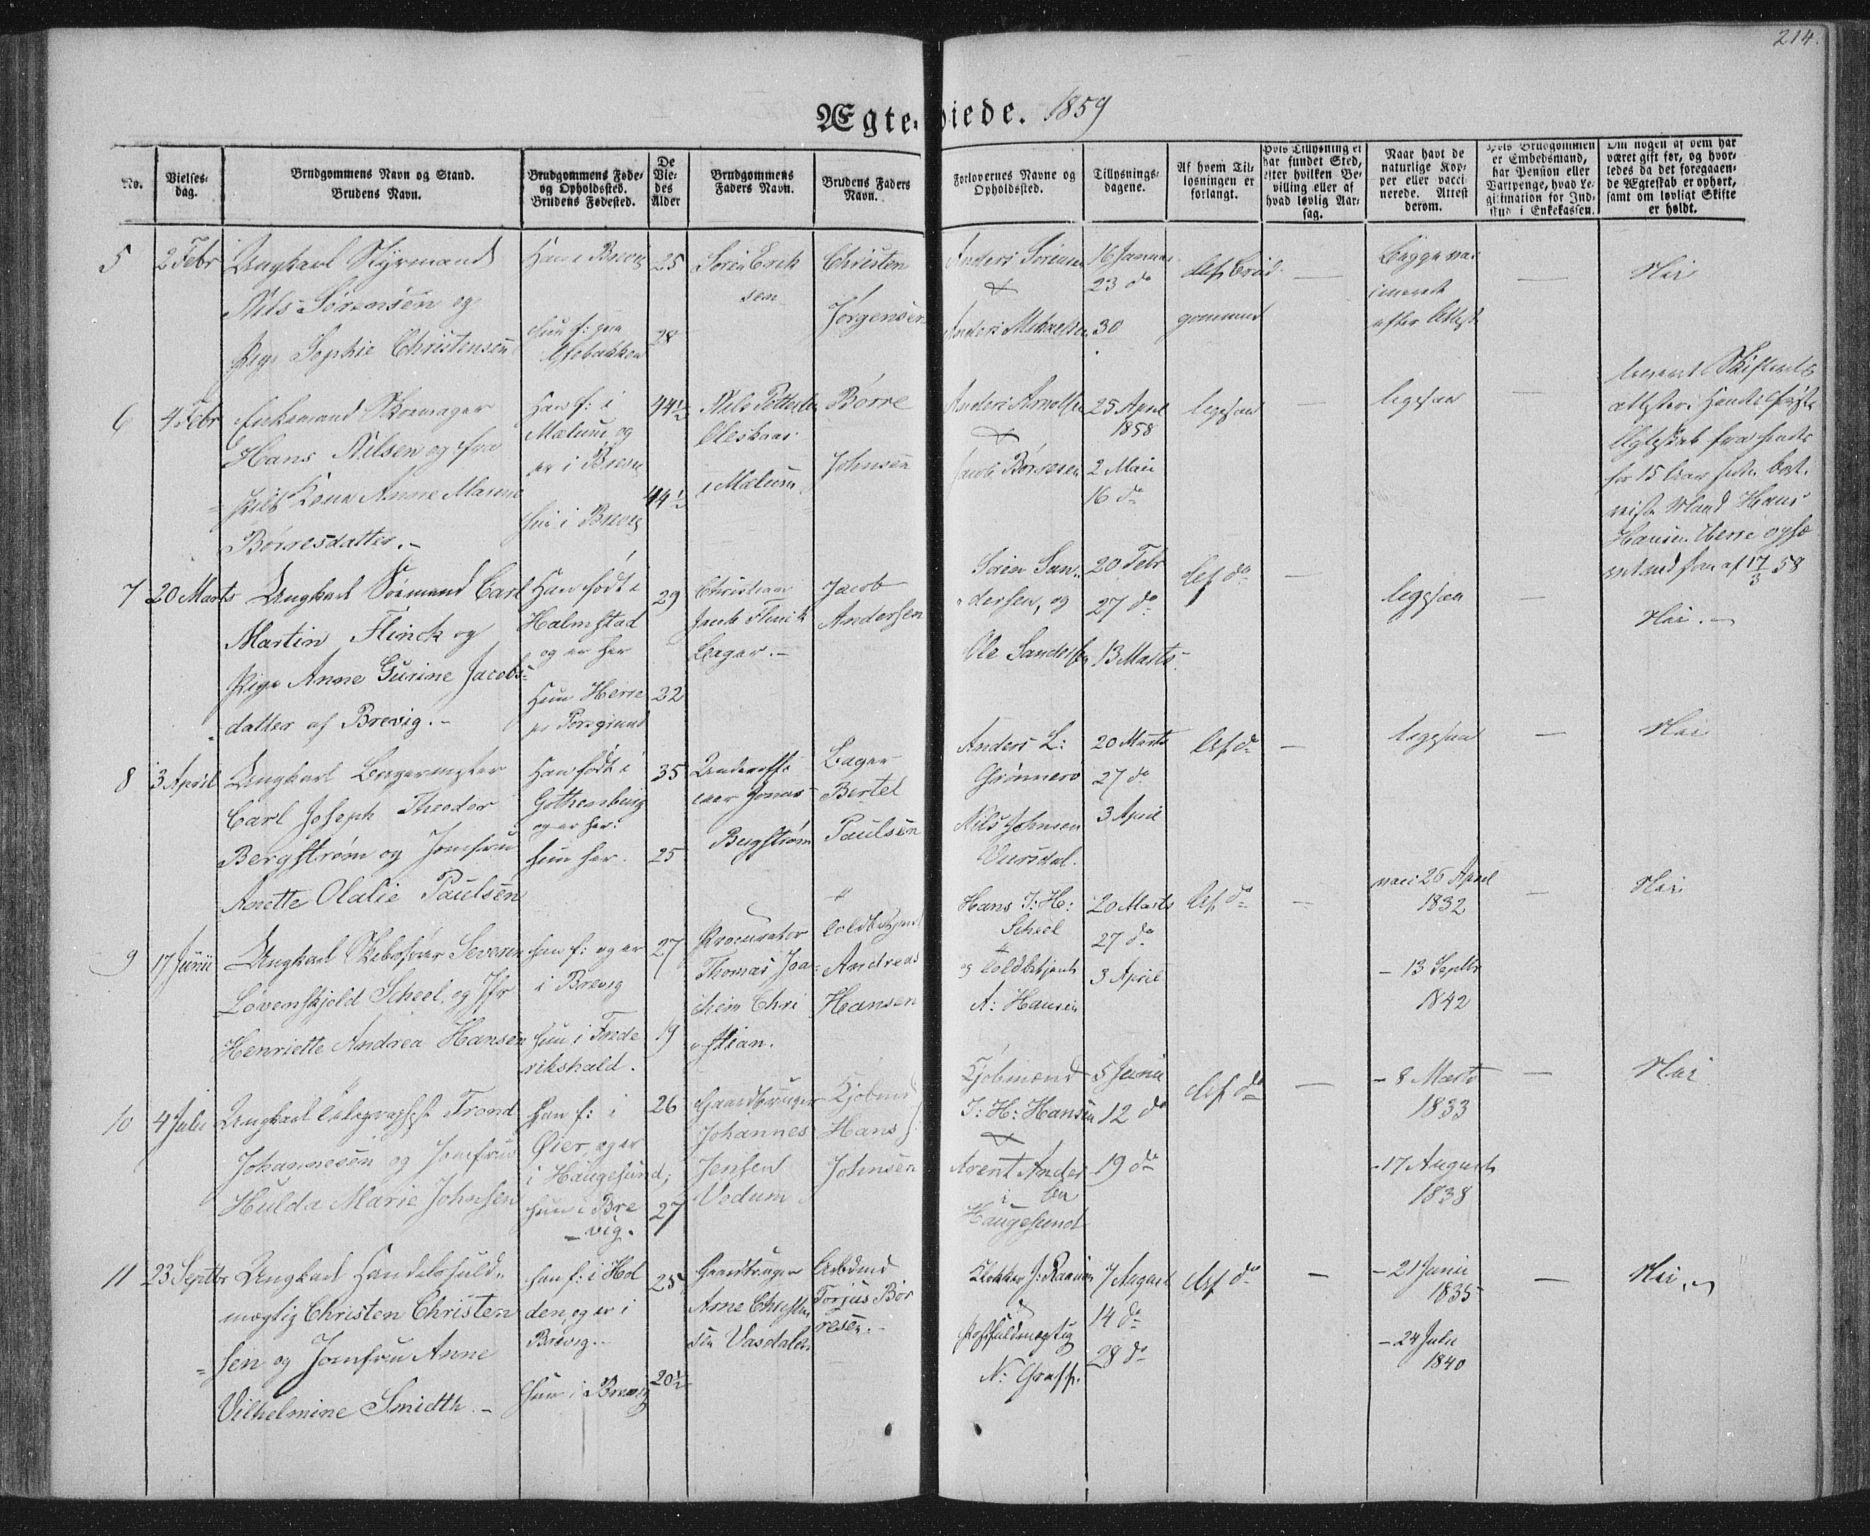 214.
Ægteviede. 1859
No.
Vielses-
dag.
Brudgommens Navn og Stand.
Brudens Navn.
Brudgommens Føde-
og Opholdssted.
Brudens Fødested.
De
Vie-
des
Alder
Brudgommens
Faders Navn.
Brudens Faders
Navn.
Forlovernes Navne og
Opholdssted.
Tillysnings-
dagene.
Af hvem Til-
lysningen er
forlangt.
Hvis Tillysning ei
har fundet Sted,
efter hvilken Be-
villing eller af
hvad lovlig Aar-
sag.
Naar havt de
naturlige Kop-
per eller vacci-
nerede. Attest
derom.
Hvis Brudgommen
er Embedsmand,
har Pension eller
Vartpenge, hvad Le-
gitimation for Ind-
skud i Enkekassen.
Om nogen af dem har
været gift før, og hvor-
ledes da det foregaaen-
de Ægteskab er ophørt,
samt om lovligt Skifte
er holdt.
5
2 Febr
Ungkarl Styrmand
Nils Sørensen og
Pige Sophie Christensen
Han i Brevig
Hun f: paa
25
28
Søren Erik
sen
Christen
Jørgensen
Anders Sørensen
Anders Mikkelsen
16 Januar
23 do
30
Af Brud
gommen
Begge vac
cinerede
efter Attest
Nei
6
4 Febr
Enkemand Skomager
Hans Nilsen og fra
skilt Kone Anne Marine
Børresdatter.
Han f: i
Mælum og
er i Brevig
Hun i Brevig
44½
44½
Nils Pettersen
i Mælum
Børre
Johnsen
Anders Arnoldsen
Jacob Børresen
25 April
1858
2 Maii
16 do
ligesaa
ligesaa
Ægteskab fra hendes
for 15 Aar siden bort
Hansen
af 17/3 58
7
20 Marts
Ungkarl Sømand Carl
Martin Flinck og
Pige Anne Gurine Jacobs
datter af Brevig.
Han født i
Halmstad
og er her
Hun Herre
pr Porsgrund
29
32
Christian
Jacob Flinck
Bager.
Jacob
Andersen
Søren San
dersen, og
Ole Sandersen
20 Febr
27 do
13 Marts
Af do
ligesaa
Nei.
8
3 April
Ungkarl Bagermester
Carl Joseph Theodor
Bergstrøm og Jomfru
Anette Olalie Paulsen
Han født i
Gothenburg
og er her:
hun her.
35
25
Underoffi
ceer Jonas
Bergstrøm
Bager
Bertel
Paulsen
Anders L:
Grønnerø
Nils Johnsen
20 Marts
27 do
3 April
Af do
ligesaa
Nei
9
17 Junii
Ungkarl Skibsfører Severin
Løvenskjold Scheel, og Jfr
Henriette Andrea Hansen
han f: og er
i Brevig
hun i Frede
rikshald.
27
19
Procurator
Thomas Joa
chim Chri
stian.
Toldbetjent
Andreas
Hansen
Hans T: H:
Scheel
og Toldbetjent
A: Hansen
20 Marts
27 do
3 April
Af do
vacc 26 April
1832
- 13 Septbr
1842
Nei
10
4 Julii
Ungkarl Telegraphist Trond
Johannesen og Jomfru
Hulda Marie Johnsen
han f: i
Øier, og er
i Haugesund;
hun i Bre
vig.
26
27
Gaardbruger
Johannes
Jensen
Vedum
Kjøbmd
Hans J:
Johnsen
Kjøbmænd
J: H: Hansen
Arent Ander
sen
i
Haugesund
5 Junii
12 do
19 do
Af do
- 8 Marts
1833
- 17 August
1838
Nei
11
23 Septbr
Ungkarl Handelsfuld
mægtig Christen Christen
sen og Jomfru Anne
Vilhelmine Smidth.
han f: i Hol
den, og er i
Brevig.
hun i Brevig
25
20½
Gaardbruger
Arne Christen
sen Vasdalen
Arbdmd
Torjus Bør
resen.
Klokker J: Raanes
Postfuldmægtig
N: Graff.
7 August
14 do
28 do
Af do
- 21 Junii
1835
- 24 Julii
1840
Nei.